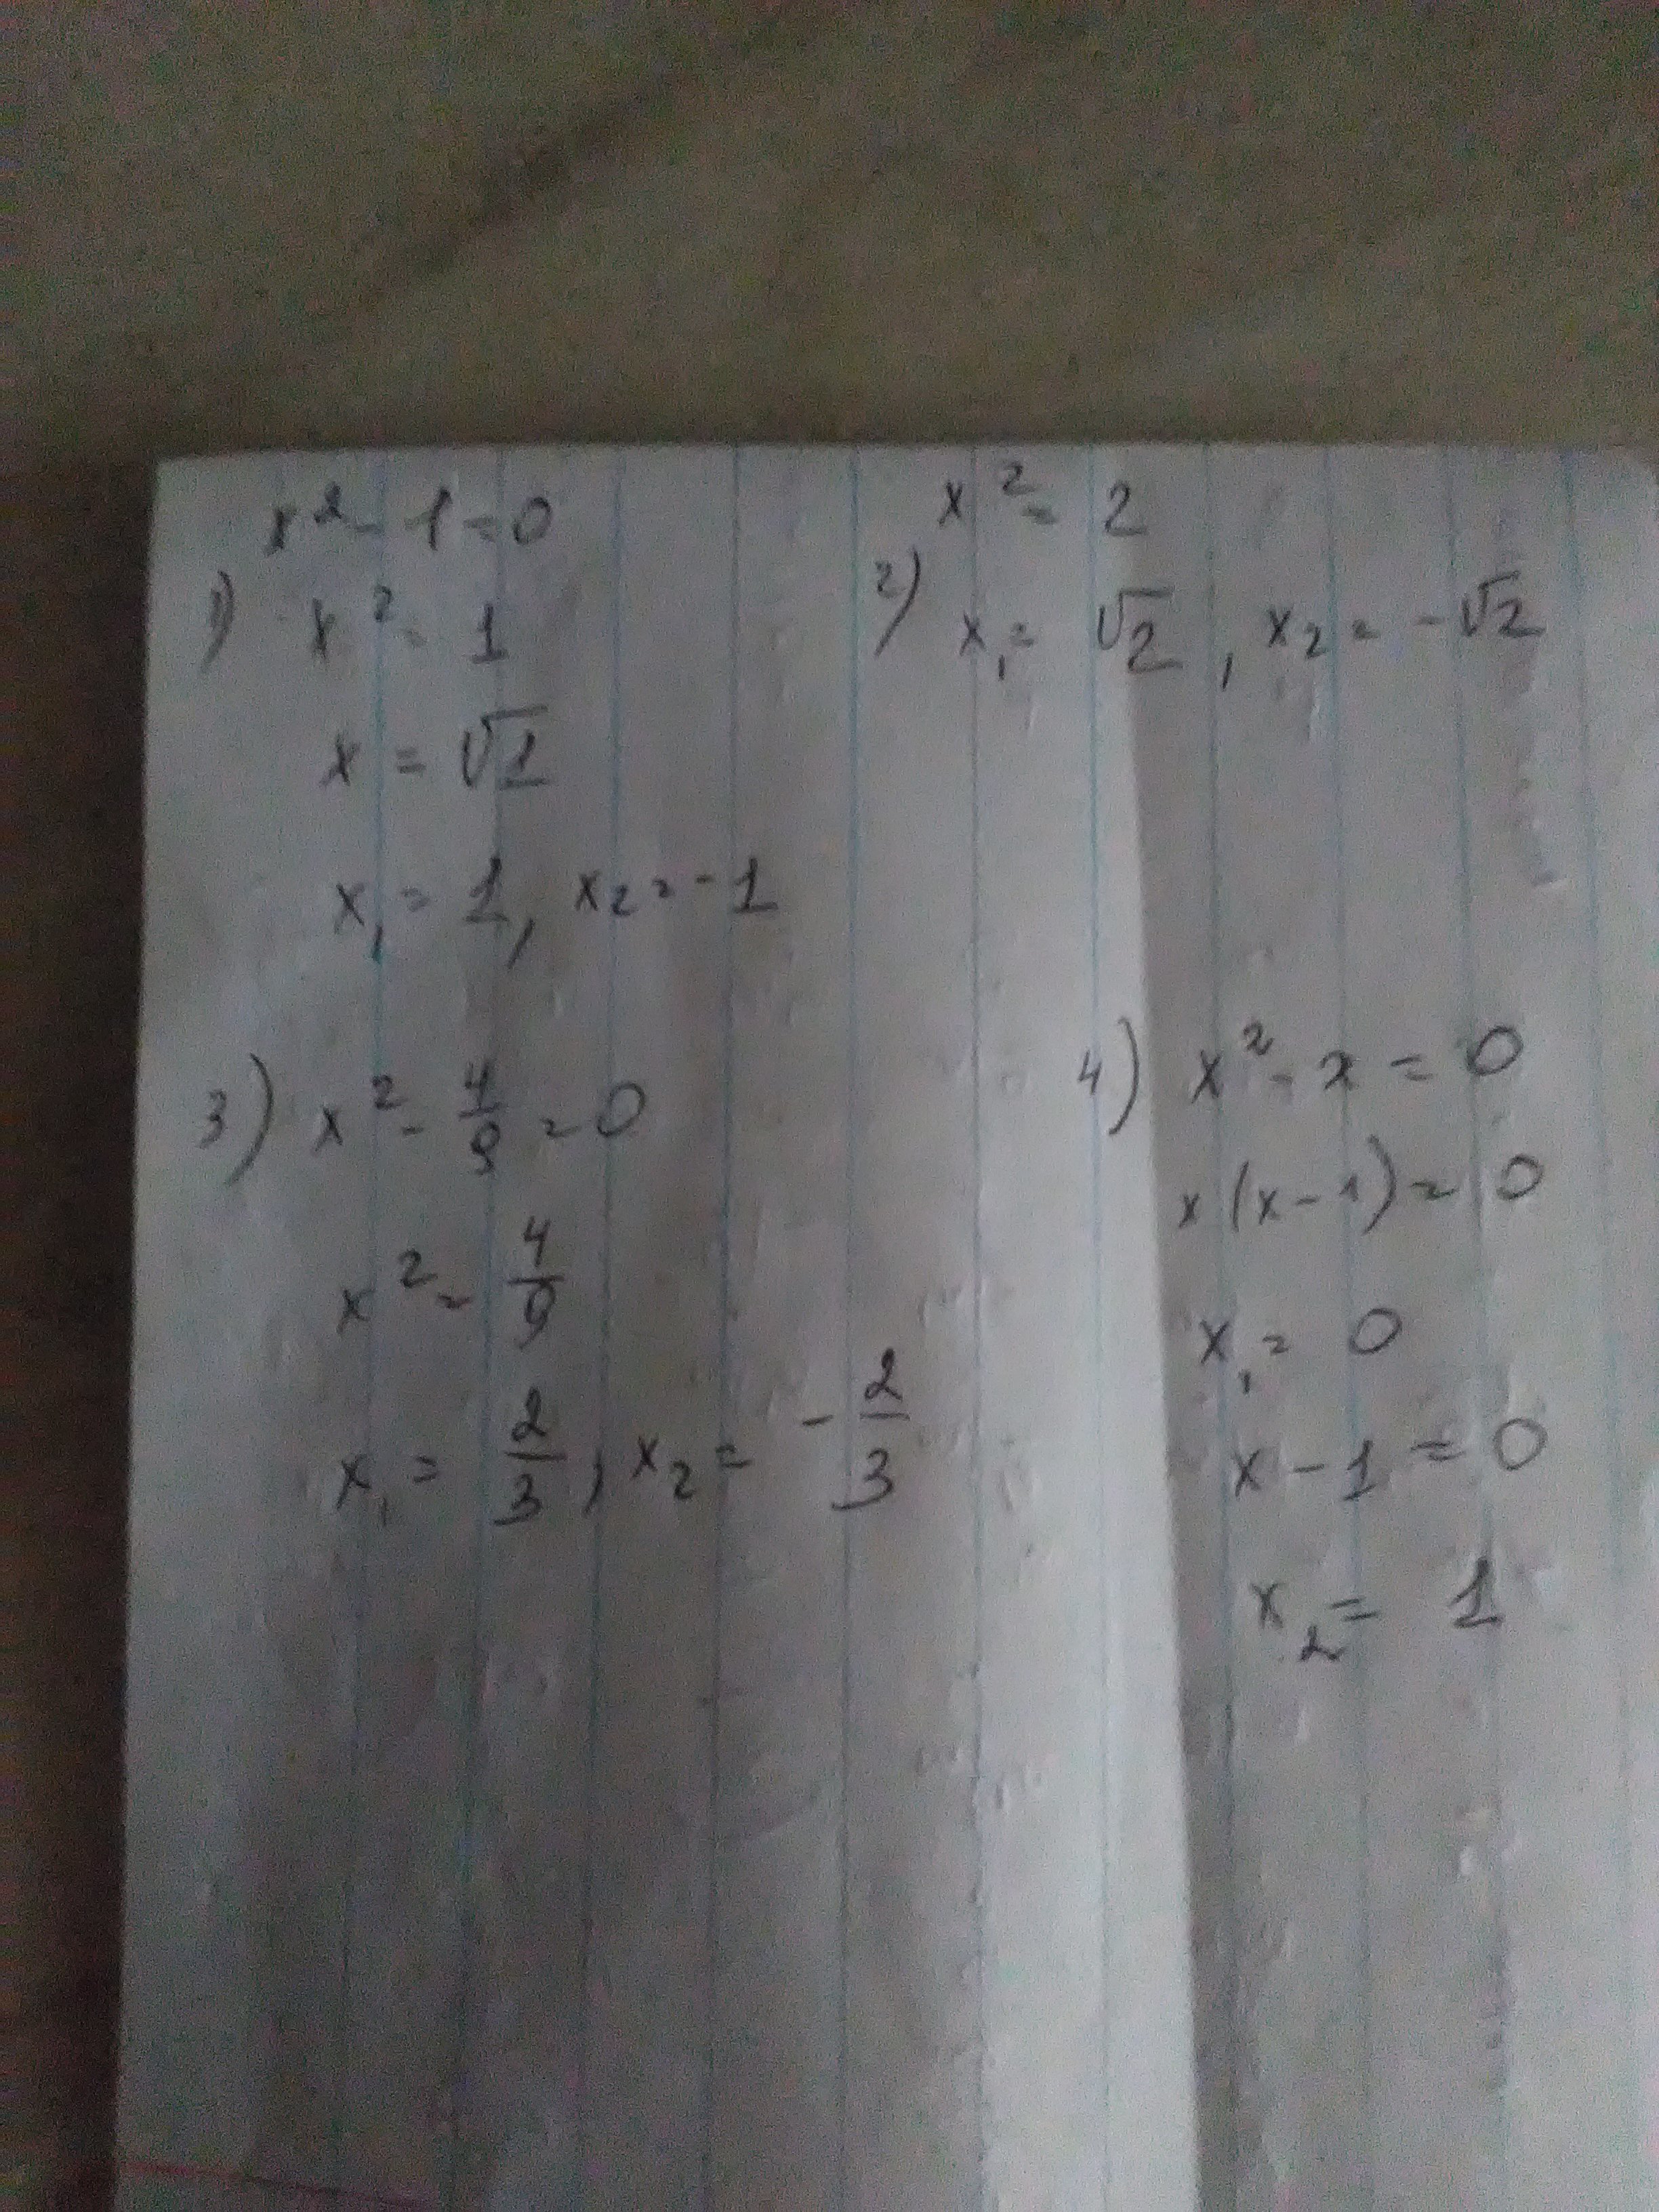 x² - 1 = 0
1) x² = 1
x = √1
x₁ = 1, x₂ = -1
x² = 2
2) x₁ = √2, x₂ = -√2
3) x² - 4/9 = 0
x² = 4/9
x₁ = 2/3, x₂ = -2/3
4) x² - x = 0
x(x - 1) = 0
x₁ = 0
x - 1 = 0
x₂ = 1